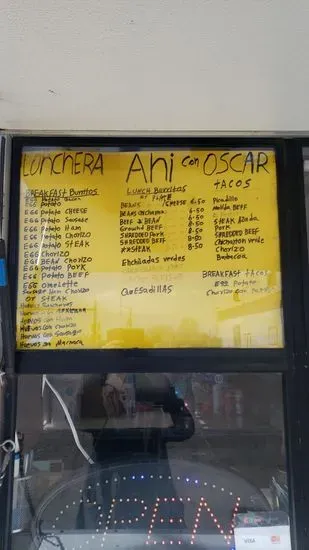 LONCHERA Ahi con OSCAR
BREAKFAST Burritos
EGG Potato
EGG Potato CHEESE
EGG Potato Sausage
EGG Potato Ham
EGG Potato Chorizo
EGG Potato STEAK
EGG Chorizo
EGG BEAN Chorizo
EGG Potato Pork
EGG Potato BEEF
EGG Omelette
Sausage Ham Chorizo
or STEAK
Huevos
Huevos
Huevos con Ham
Huevos con Chorizo
Huevos con Sausage
Huevos con
LUNCH Burritos
BEANS CHEESE 6.50
BEANS Chicharron 6.50
BEEF & BEAN 6.50
Ground BEEF 8.50
SHREDDED BEEF 8.50
SHREDDED BEEF 8.50
STEAK 8.50
Enchiladas verdes
QUESADILLAS
TACOS
Picadillo
BEEF
STEAK
Pork
SHREDDED BEEF
Chicharron verde
Chorizo
Barbacoa
BREAKFAST tacos
EGG Potato
Chorizo con
OPEN
VISA